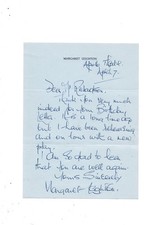 MARGARET LEIGHTON
April 7.
Dear Mr Richardson
Thank you very much
indeed for your Birthday
letter. It is a long time ago
but I have been rehearsing
and on tour with a new
play.
I am so glad to hear
that you are well again
Yours Sincerely
Margaret Leighton.